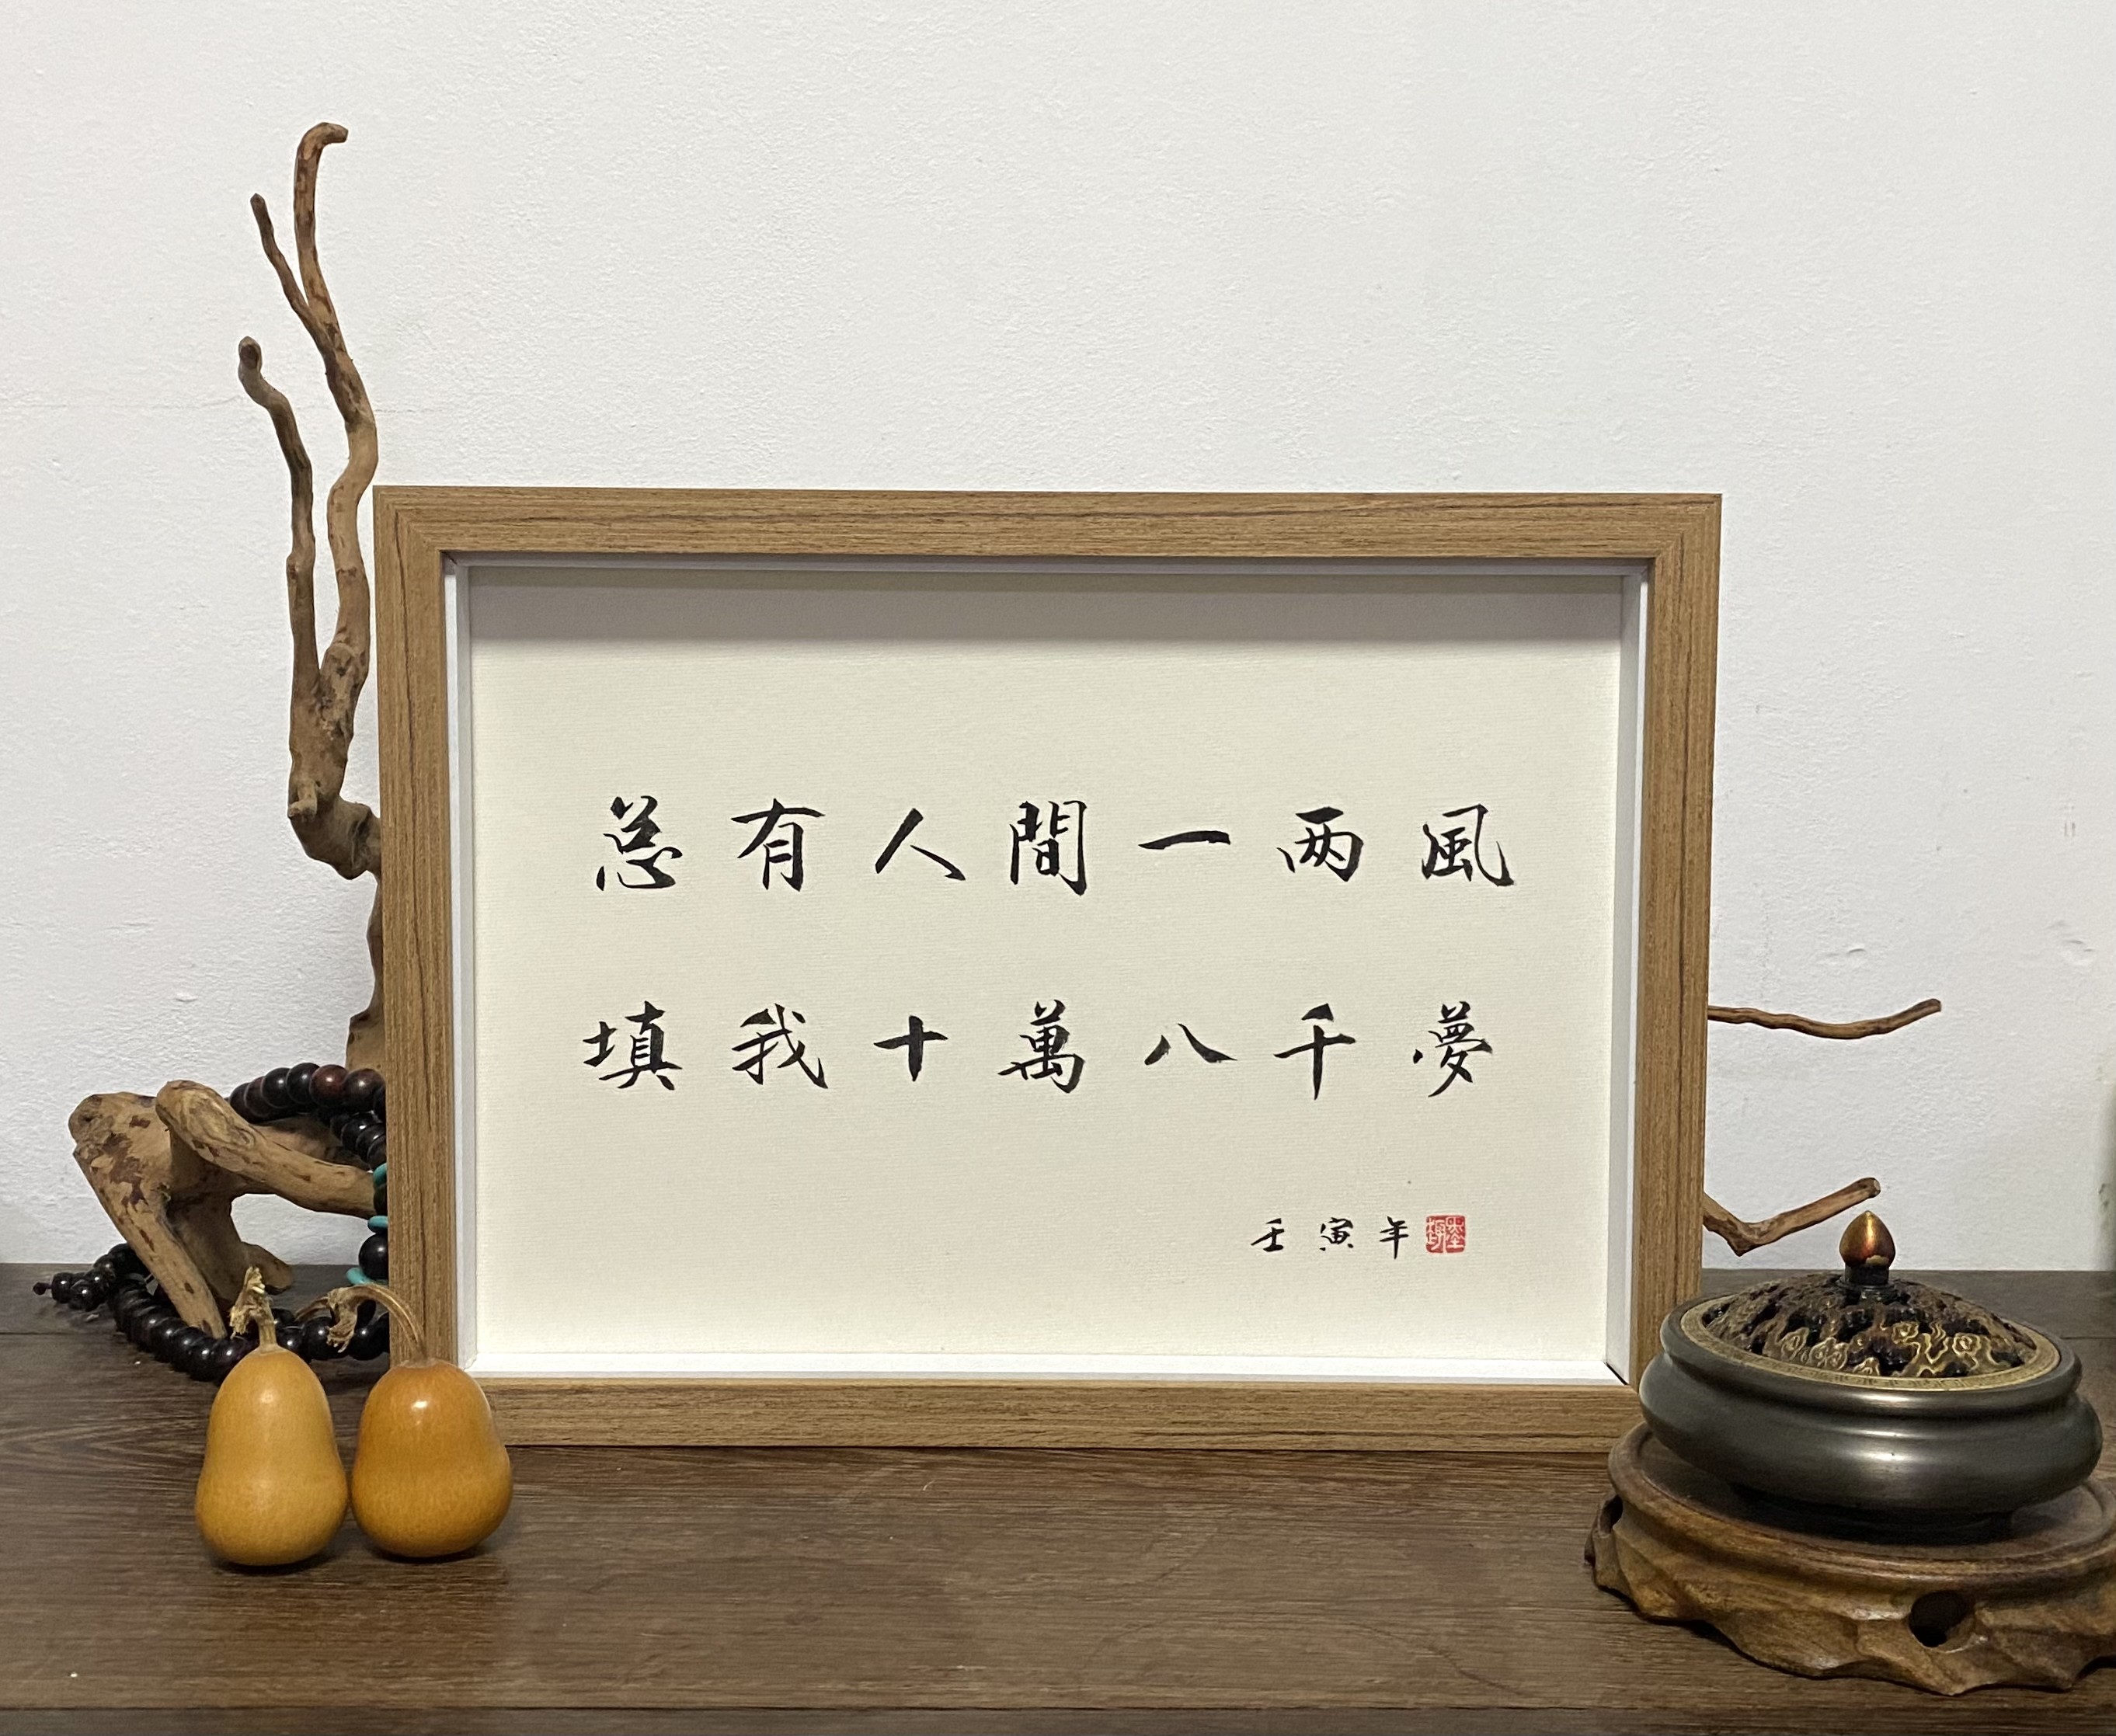 总有人間一两風
填我十萬八千夢
壬寅年